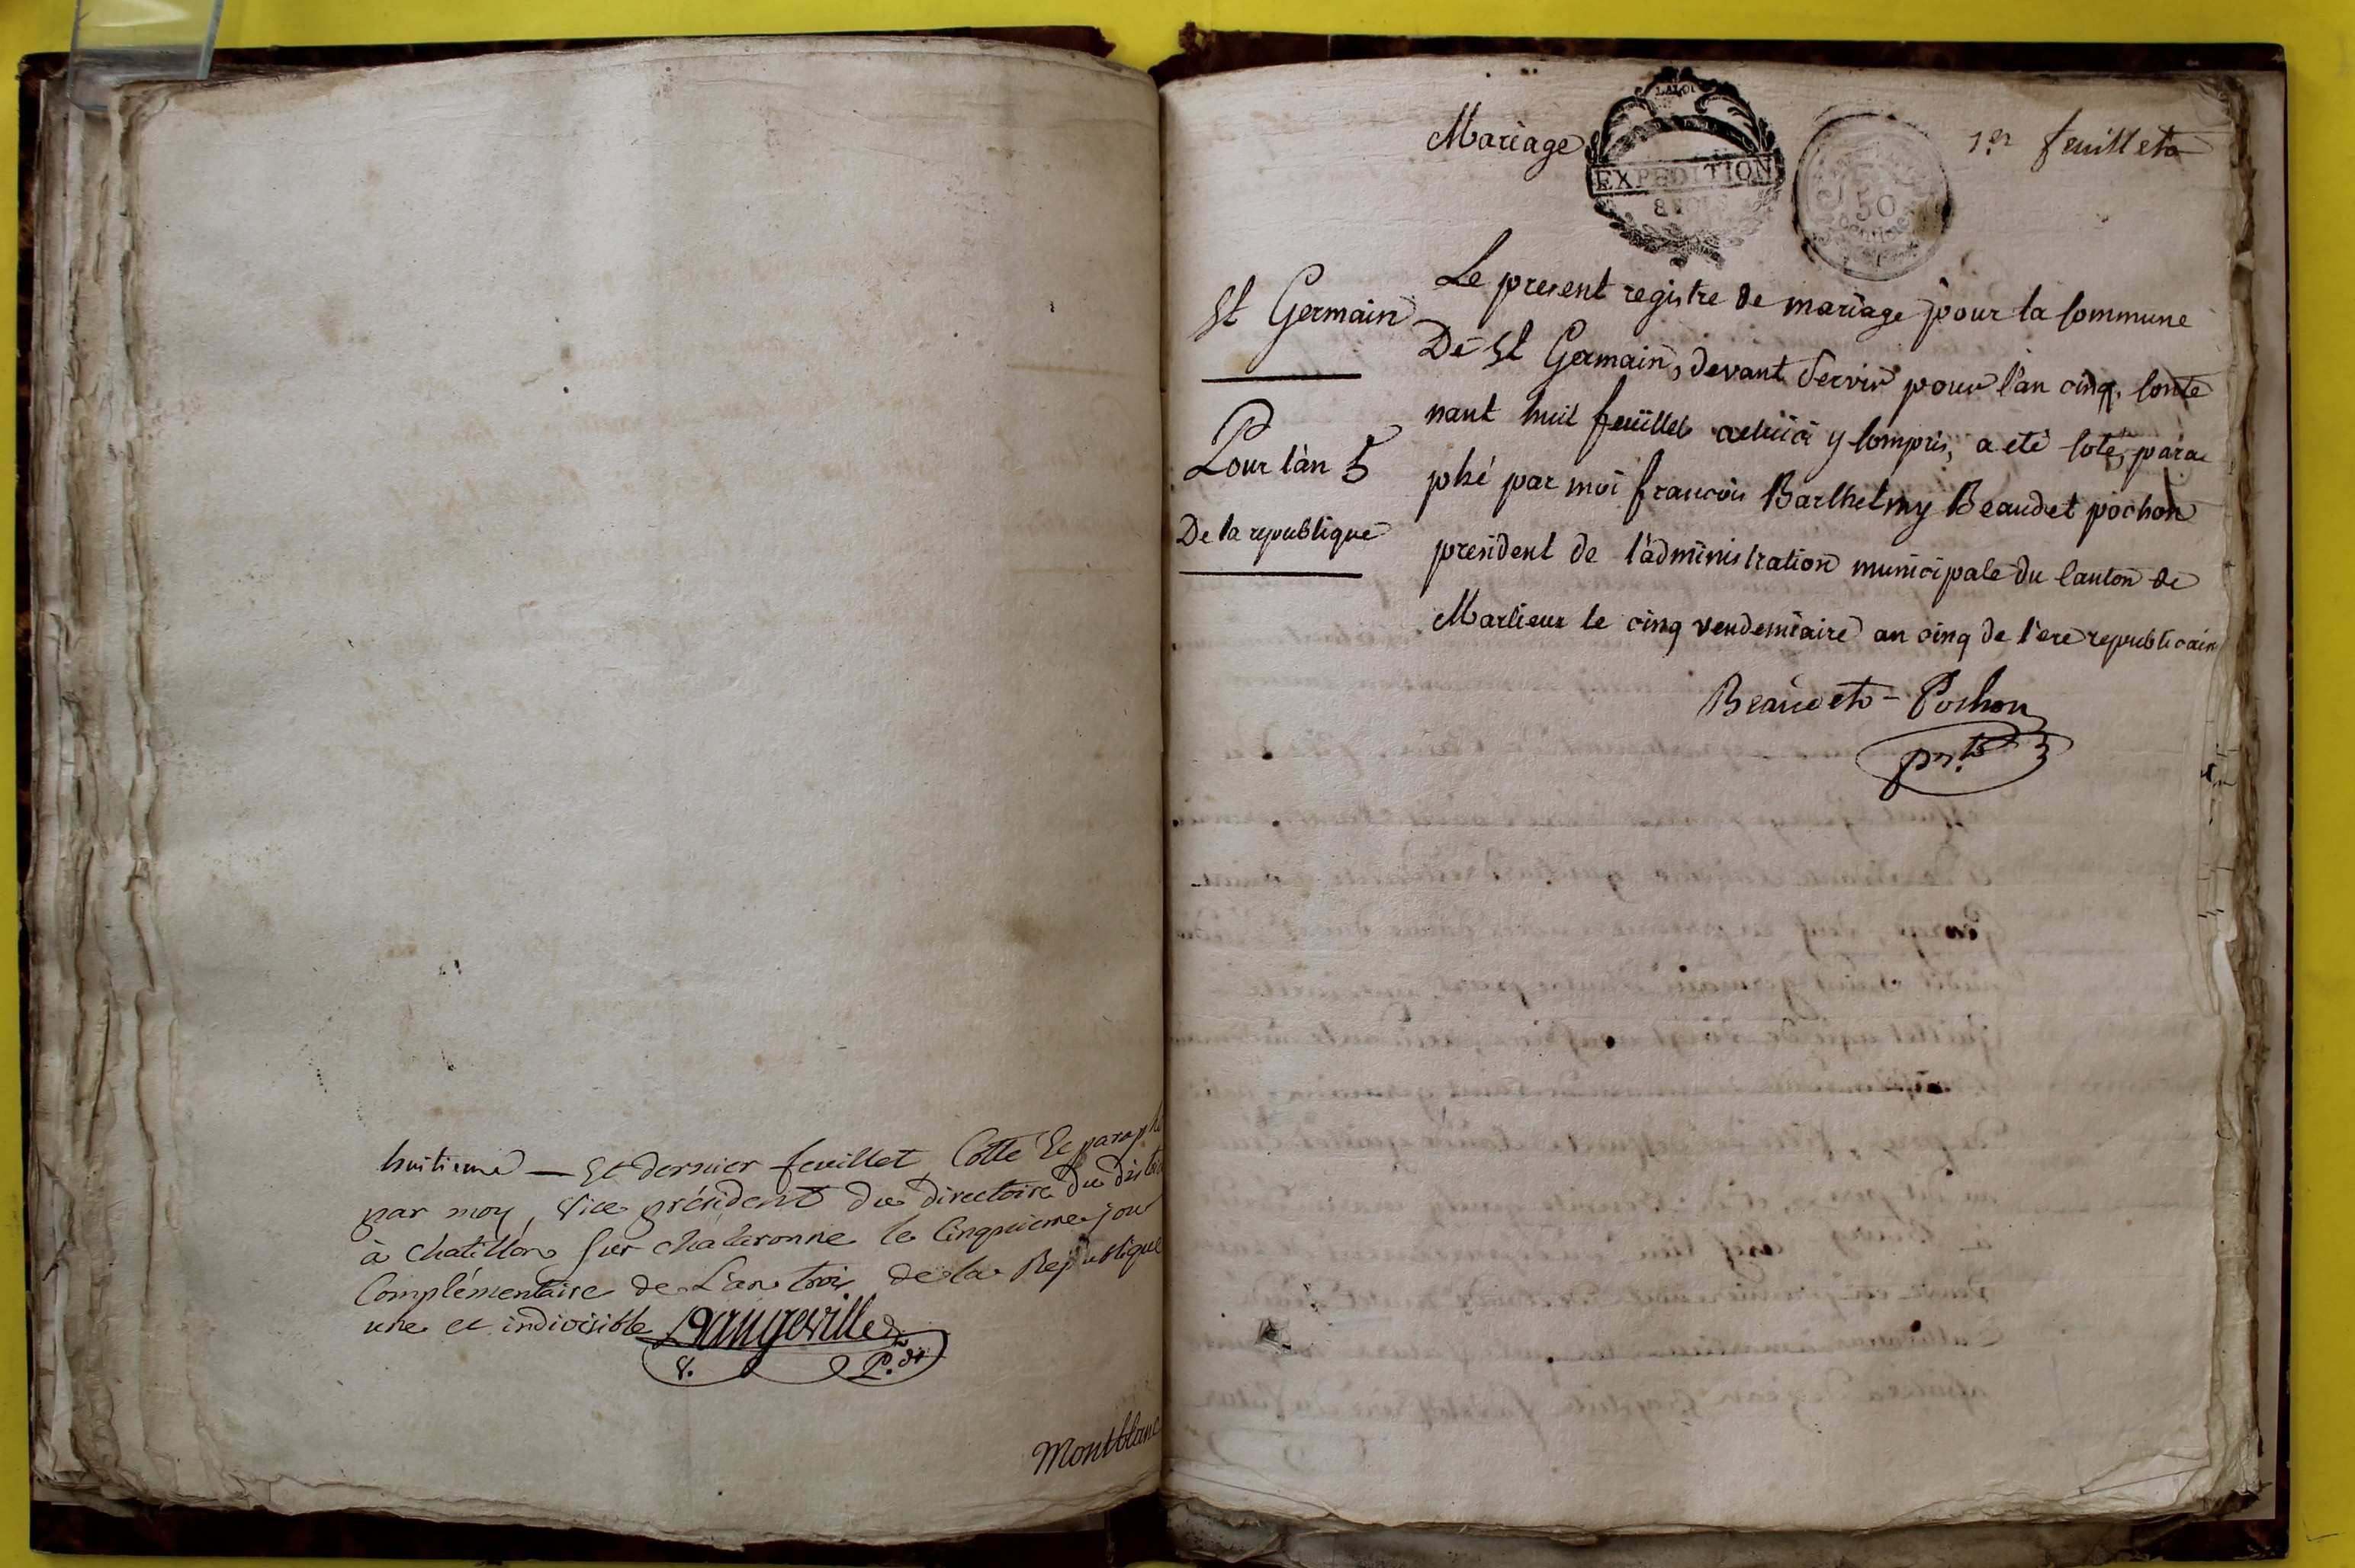 huitieme — Et dernier feuillet, Cotté Et paraphé
par moy, Vice président du directoire du district
à chatillon sur chalaronne le Cinquieme jour
Complémentaire de L'an trois de la Republique
une et indivisible Dangeville
V. P.dt
Montblanc
Mariage
LA LOI
EXPEDITION
8 SOLS
50
Centimes
1er feuillet
St Germain
Pour l'an 5
De la republique
Le present registre de mariage pour la Commune
De St Germain, devant Servir pour l'an cinq, Conte
nant huit feuillet celuici y Compris, a eté Coté, para
phé par moi francois Barthelmy Beaudet pochon
president de l'administration municipale du Canton de
Marlieux le cinq vendemiaire an cinq de l'ere republicain
Beaudet - Pochon
prt